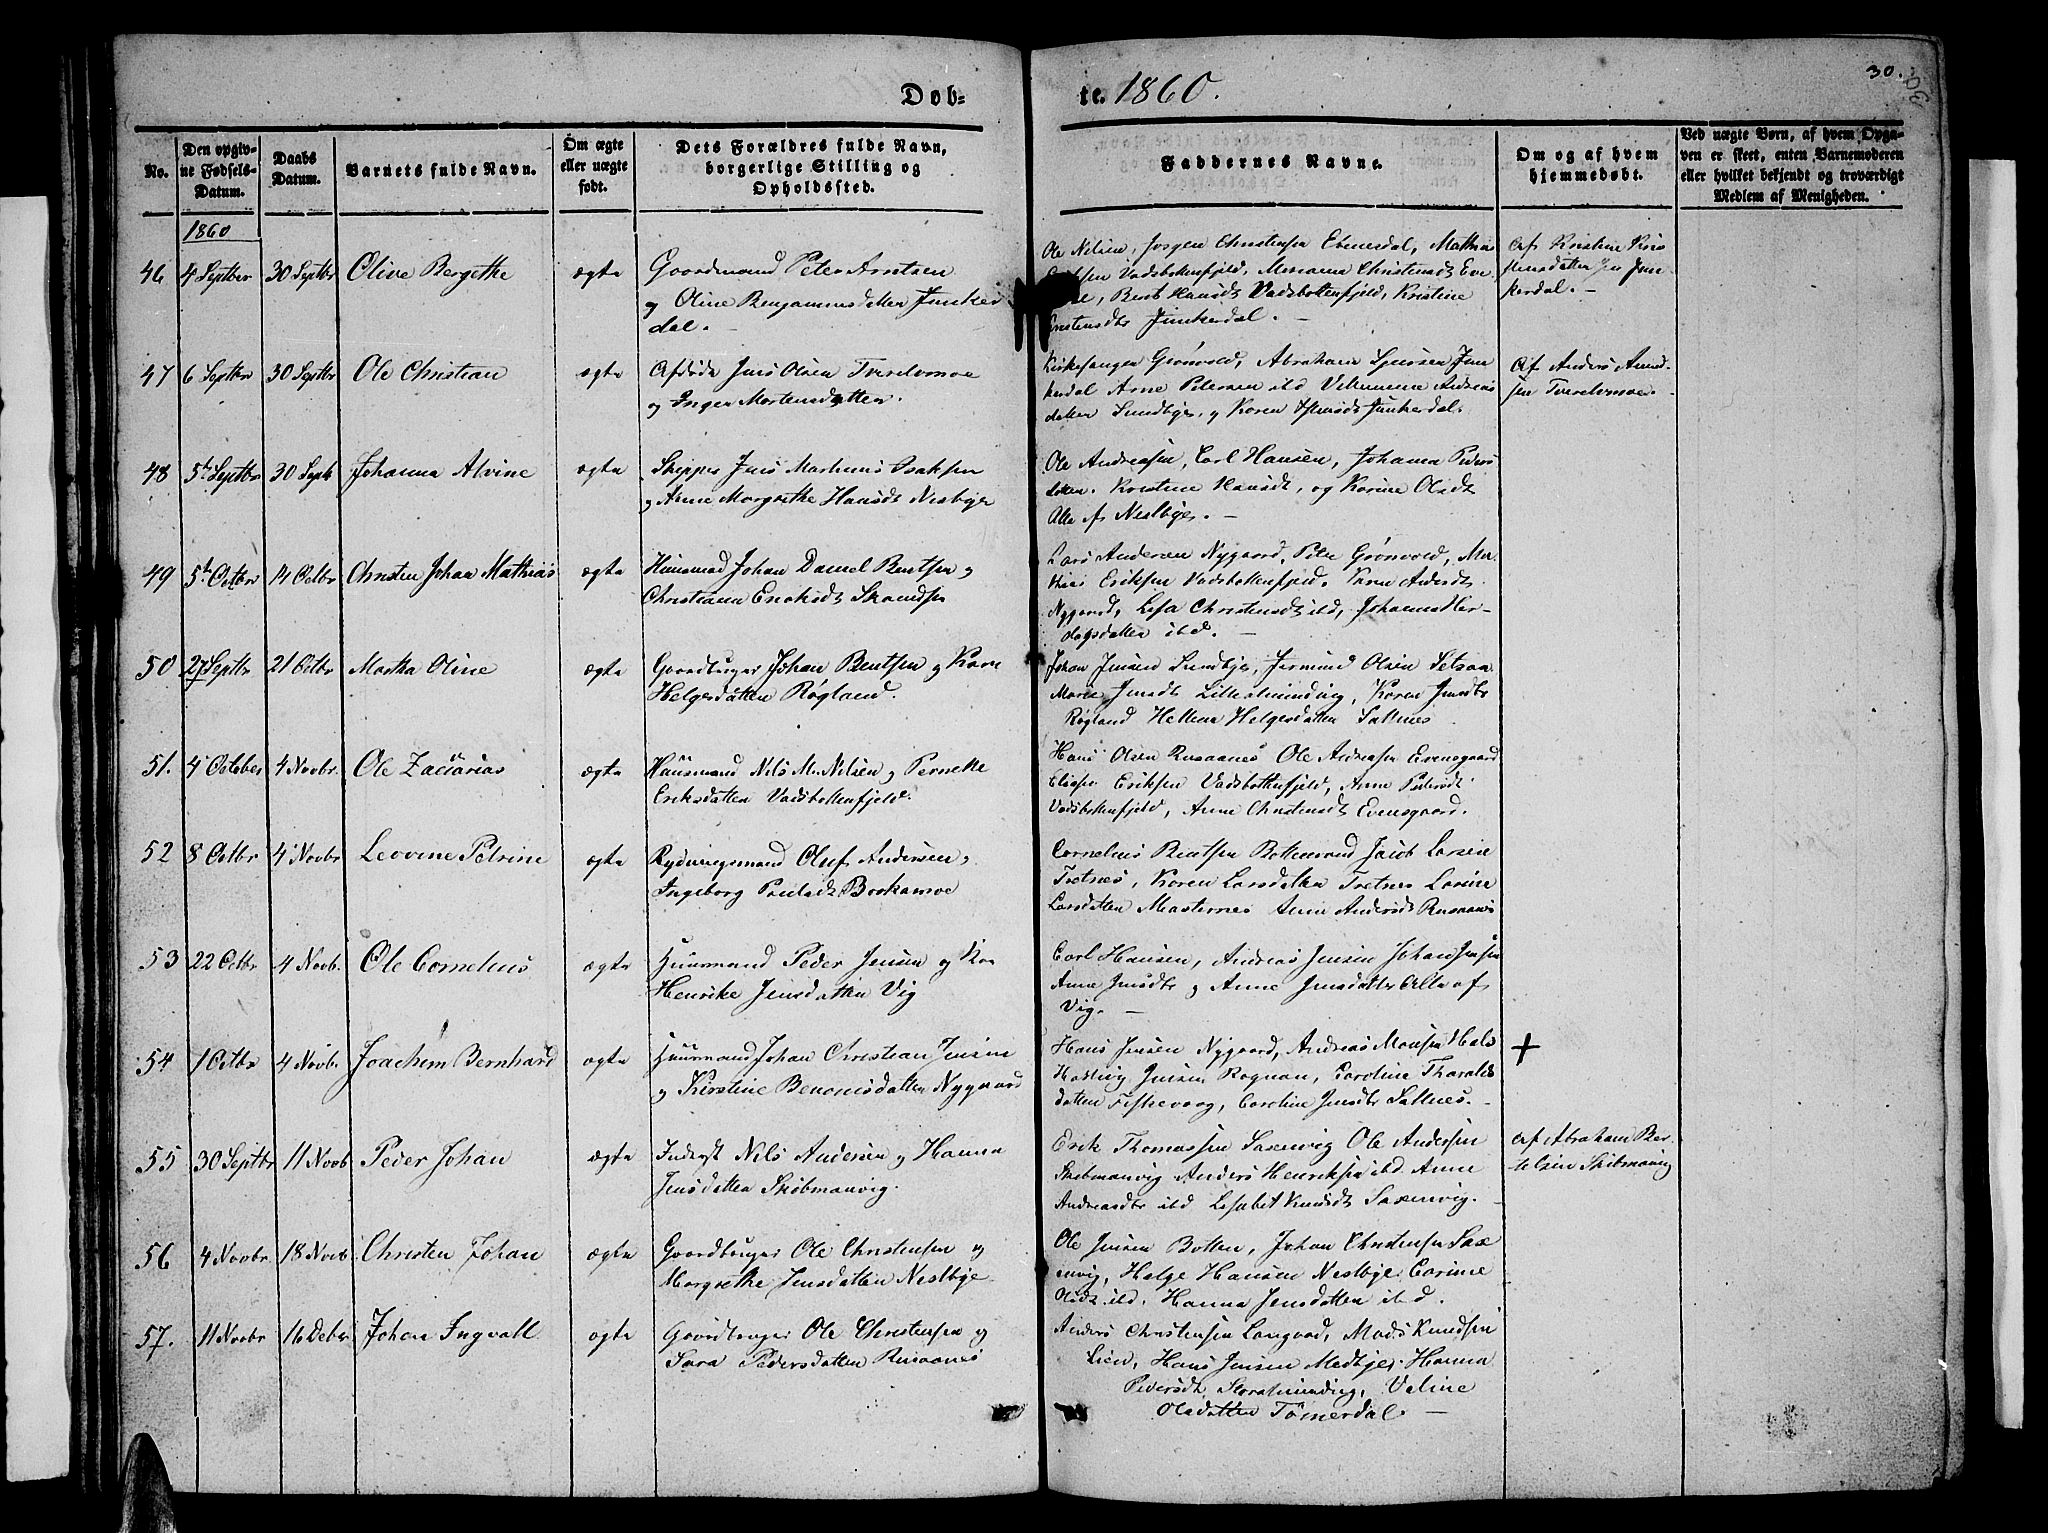 Døb=
te. 1860.
30.
No.
Den opgiv-
ne Fødsels-
Datum.
Daabs
Datum.
Barnets fulde Navn.
Om ægte
eller uægte
født.
Dets Forældres fulde Navn,
borgerlige Stilling og
Opholdssted.
Faddernes Navne.
Om og af hvem
hjemmedøbt.
Ved uægte Børn, af hvem Opga-
ven er skeet, enten Barnemoderen
eller hvilket bekjendt og troværdigt
Medlem af Menigheden.
1860
46 4 Septber 30 Septbr Olive Bergithe ægte
Gaardmand Peter Arntsen
og Oline Benjaminsdatter Junker
dal. -
Ole Nilsen, Jørgen Christensen Evenesdal, Mathias
Eriksen Vadsbottenfjeld, Mariana Christensdt Eve
Berit Hansdt Vadsbottenfjeld, Kristine
Junkerdal. -
Af Kristine Kris
tensdatter Jun
kerdal. -
47 6 Septbr 30 Septbr Ole Christian ægte
Afdøde Jens Olsen Tverelvmoe
og Inger Mortensdatter.
Kirkesanger Grønvold, Abraham Jun
kerdal Arne Petersen ibd Andreas
datter Sundbye, og Karen Junkerdal.
Af Anders Amund-
sen Tverelvmoe. -
48 5te Septbr 30 Septb Johanna Alvine ægte
Skipper Jens Martinus Isaksen
og Anne Margrethe Hansdt Nestbye
Ole Andreasen, Carl Hansen, Johanna Peders
datter, Kristine Hansdt, og Karine Olsdt
Alle af Nestbye. -
49 5te Octbr 14 Octbr Christen Johan Mathias ægte
Huusmand Johan Daniel Bentsen og
Christiana Enoksdt
Lars Andersen Nygaard, Peter Grønvold, Ma-
thias Eriksen Vadsbottenfjeld, Karen Andersdt
Nygaard, Lisa Christensdt ibd, Johanna Her-
logsdatter ibd. -
50 27 Septbr 21 Octbr Martha Oline ægte
Gaardbruger Johan Bentsen og Karen
Helgesdatter Røgland.
Johan Jensen Sundbye, Jermund Olsen Setsaa
Maria Jensdt Karen Jensdtr
Røgland Hellena Helgesdatter Saltnes
51. 4 October 4 Novbr. Ole Zacarias ægte
Huusmand Nils M. Nilsen og Pernelle
Eriksdatter Vadsbottenfjeld.
Hans Olsen Rusaanes Ole Andreasen Evensgaard
Elias Eriksen Vadsbottenfjeld, Anne Pedersdt
Vadsbottenfjeld, Anne Christensdt Evensgaard.
52 8 Octbr 4 Novbr Leovine Petrine ægte
Rydningsmand Oluf Andersen,
Ingeborg Paulsdt Bookamoe
Cornelius Bentsen Bottenvand Jacob Larsen
Tretnes, Karen Larsdatter Tretnes Larine
Larsdatter Anne Andersdt Rusaanes
53 22 Octbr 4 Novb. Ole Cornelius ægte
Huusmand Peder Jensen og
Henrike Jensdatter Vig
Carl Hansen, Andreas Jensen Johan Jensen
Anne Jensdtr og Anne Jensdatter Alle af
Vig. -
54 1 Octbr 4 Novb. Joachim Bernhard ægte
Huusmand Johan Christian Jensen
og Kirstine Benonisdatter Nygaard
Hans Jensen Nygaard, Andreas Monsen Hals
Jensen Rognan, Caroline Tharalds
datter Fiskevaag, Caroline Jensdtr Saltnes. -
+
55 30 Septbr 11 Novb Peder Johan ægte
Inderst Nils Andersen og Hanna
Jensdatter Skibmanvig.
Erik Thomassen Saxenvig Ole Andersen
Skibmanvig Anders Henriksen ibd Anne
Andreasdtr ibd Lisabet Knudsdt Saxenvig.
Af Abraham Ber
telsen Skibmanvig
56 4 Novbr 18 Novb Christen Johan ægte
Gaardbruger Ole Christensen og
Margrethe Jensdatter Nestbye
Ole Jensen Botten, Johan Christensen Sax
envig, Helge Hansen Nestbye Carine
Olsdt ibd. Hanna Jensdatter ibd.
57. 11 Novbr 16 Debr Johan Ingvall ægte
Gaardbruger Ole Christensen og
Sara Pedersdatter Rusaanes
Anders Christensen Langaad, Mads Knudsen
Lien, Hans Jensen Medbye, Hanna
Pedersdt Storalmindig, Veline
Olsdatter Tømerdal -